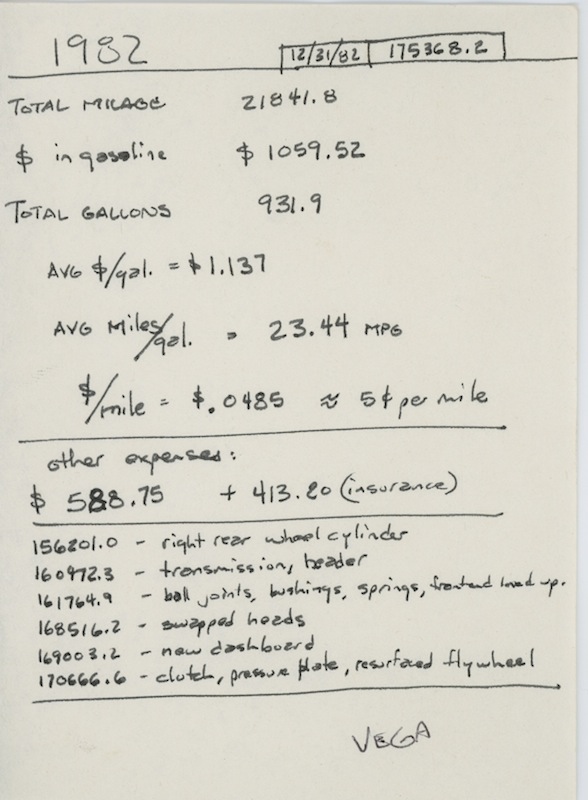 1982 12/31/82 175368.2
TOTAL MILAGE 21841.8
$ in gasoline $ 1059.52
TOTAL GALLONS 931.9
AVG $/gal. = $1.137
AVG Miles/gal. = 23.44 MPG
$/mile = $.0485 ≈ 5¢ per mile
other expenses:
$ 588.75 + 413.20 (insurance)
156201.0 - right rear wheel cylinder
160972.3 - transmission, header
161764.9 - ball joints, bushings, springs, frontend lined up.
168516.2 - swapped heads
169003.2 - new dashboard
170666.6 - clutch, pressure plate, resurfaced flywheel
VEGA